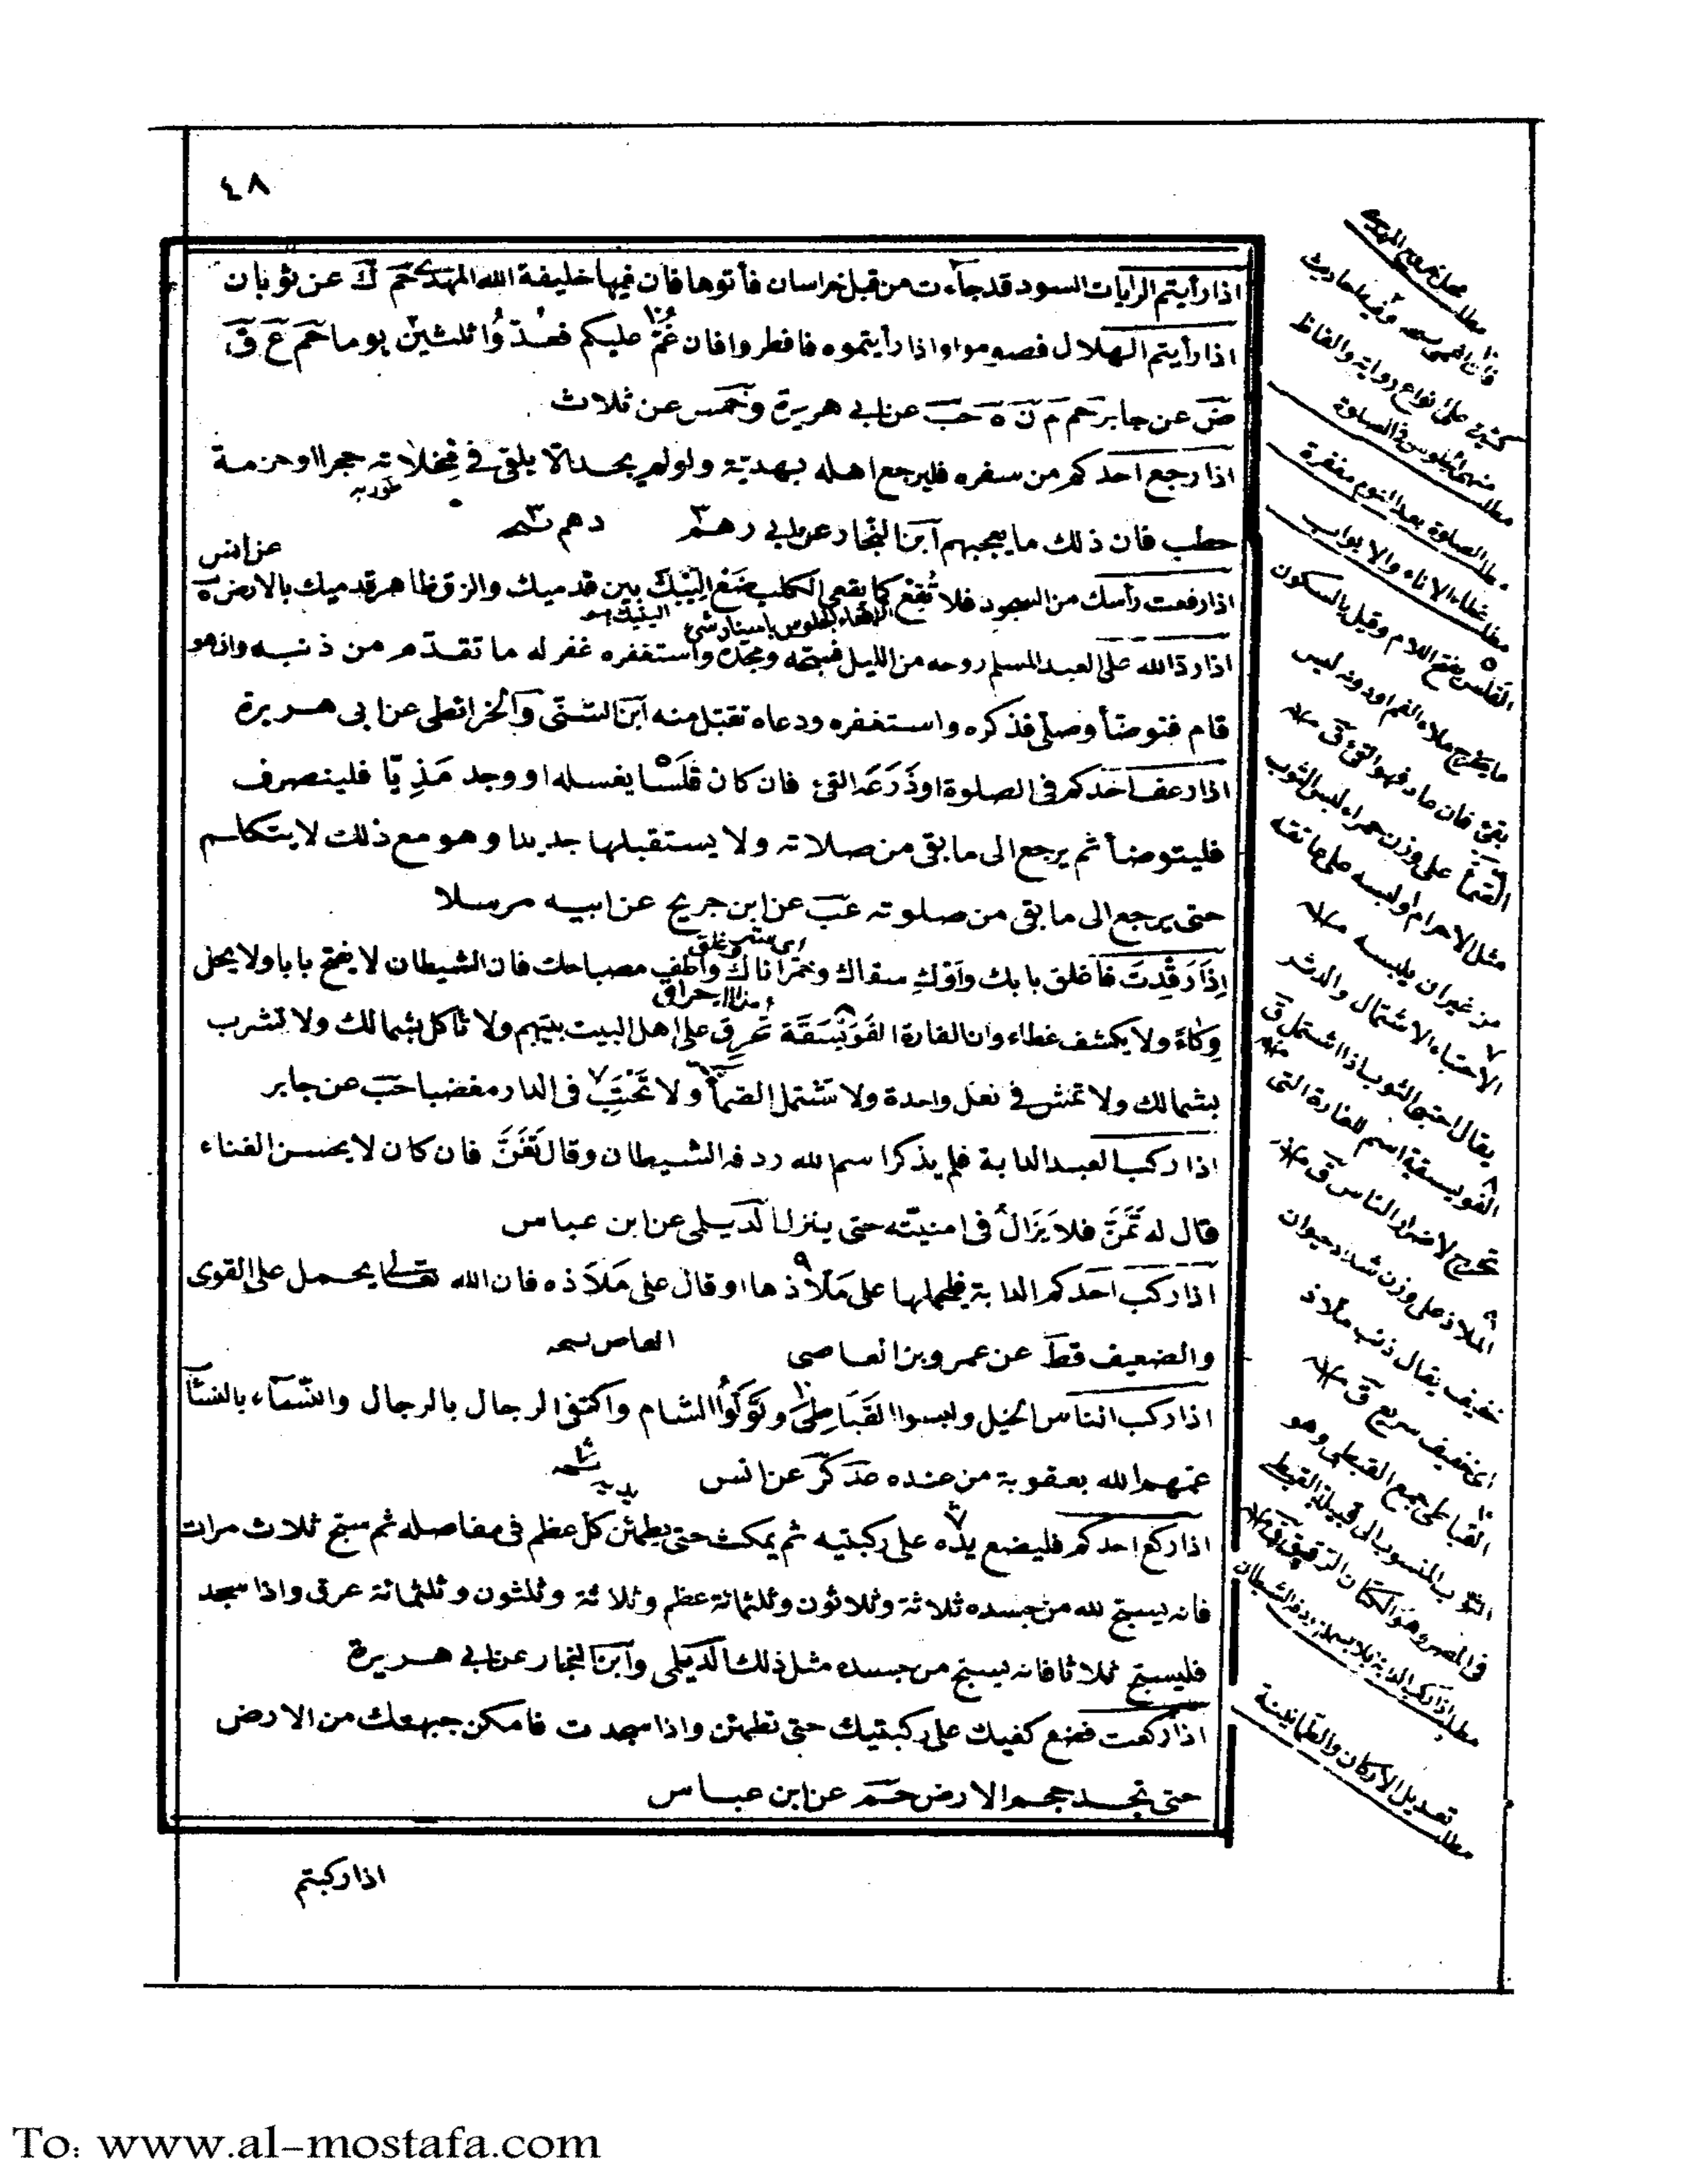 ٤٨
اذا رأيتم الرايات السود قد جاءت من قبل خراسان فأتوها فان فيها خليفة الله المهدى حم ك عن ثوبان
اذا رأيتم الهلال فصوموا واذا رأيتموه فافطروا فان غُمَّ عليكم فعُدّوا ثلثين يوما حم ع ق
ض عن جابر حم م ن ه حب عن ابي هريرة وخمس عن ثلاث
اذا رجع احدكم من سفره فليرجع اهله بهديّة ولو لم يجد الا يلقى في مخلاته حجرا او حزمة
حطب فان ذلك ما يعجبهم ابن النجار عن ابي رهم
عن انس
اذا رفعت رأسك من السجود فلا تُقْعِ كما يقعى الكلب ضع اليتيك بين قدميك والزق ظاهر قدميك بالارض ه
اذا ردّ الله على العبد المسلم روحه من الليل فسبّحه ومجّده واستغفره غفر له ما تقدّم من ذنبه وان هو
قام فتوضأ وصلى فذكره واستغفره ودعاه تقبّل منه ابن السّنّى والخرائطى عن ابى هريرة
اذا رعف احدكم فى الصلوة او ذَرَعَه القئ فان كان قَلَسًا يغسله او وجد مَذِيّا فلينصرف
فليتوضأ ثم يرجع الى ما بقى من صلاته ولا يستقبلها جديدا وهو مع ذلك لا يتكلم
حتى يرجع الى ما بقى من صلوته عب عن ابن جريح عن ابيه مرسلا
اذا رَقَدتَ فأغلق بابك وأوْكِ سقاك وخمّر اناك وأطف مصباحك فان الشيطان لا يفتح بابا ولا يحل
وِكاءً ولا يكشف غطاء وان الفارة الفَوَيْسَقَة تحرق على اهل البيت بيتهم ولا تأكل بشمالك ولا تشرب
بشمالك ولا تمش في نعل واحدة ولا تشتمل الصمأ ولا تَحْتَبِ فى الدار مفضيا حب عن جابر
اذا ركب العبد الدابة فلم يذكر اسم الله ردفه الشيطان وقال تَغَنَّ فان كان لا يحسن الغناء
قال له تَمَنَّ فلا يَزَالُ فى امنيته حتى ينزل الديلمى عن ابن عباس
اذا ركب احدكم الدابة فليحملها على مَلَاذها او قال على مَلَاذه فان الله تعالى يحمل على القوى
والضعيف قط عن عمرو بن العاصى
اذا ركب الناس الخيل ولبسوا القَبَاطِىَّ ونزلوا الشام واكتفى الرجال بالرجال والنسآء بالنسآء
عمّهم الله بعقوبة من عنده عد كر عن انس
اذا ركع احدكم فليضع يده على ركبتيه ثم يمكث حتى يطمئن كل عظم فى مفاصله ثم سبّح ثلاث مرات
فانه يسبّح لله من جسده ثلاثة وثلاثون وثلثمائة عظم وثلاثة وثلثون وثلثمائة عرق واذا سجد
فليسبّح ثلاثا فانه يسبح من جسده مثل ذلك الديلمى وابن النجار عن ابي هريرة
اذا ركعت فضع كفيك على ركبتيك حتى تطمئن واذا سجدت فامكن جبهتك من الارض
حتى تجد حجم الارض حم عن ابن عباس
اذا ركبتم
كثيرة على انواع رواية والفاظ
مطلب الصلوة بعد النوم مغفرة
مطلب غطاء الاناء والابواب
القلس بفتح اللام وقيل بالسكون
ما يخرج ملاء الفم او دونه ليس
بقئ فان عاد فهو القئ ق
مثل الاحرام او لبسه على عاتقه
من غير ان يلبسه
يقال احتبى الثوب اذا اشتمل ق
الفويسقة اسم للفارة التى
تخرج لاضرار الناس ق
الملاذ على وزن شداد حيوان
خفيف يقال ذئب ملاذ
اى خفيف سريع ق
القباطى جمع القبطى وهو
مطلب تعديل الاركان والطمانينة
To: www.al-mostafa.com